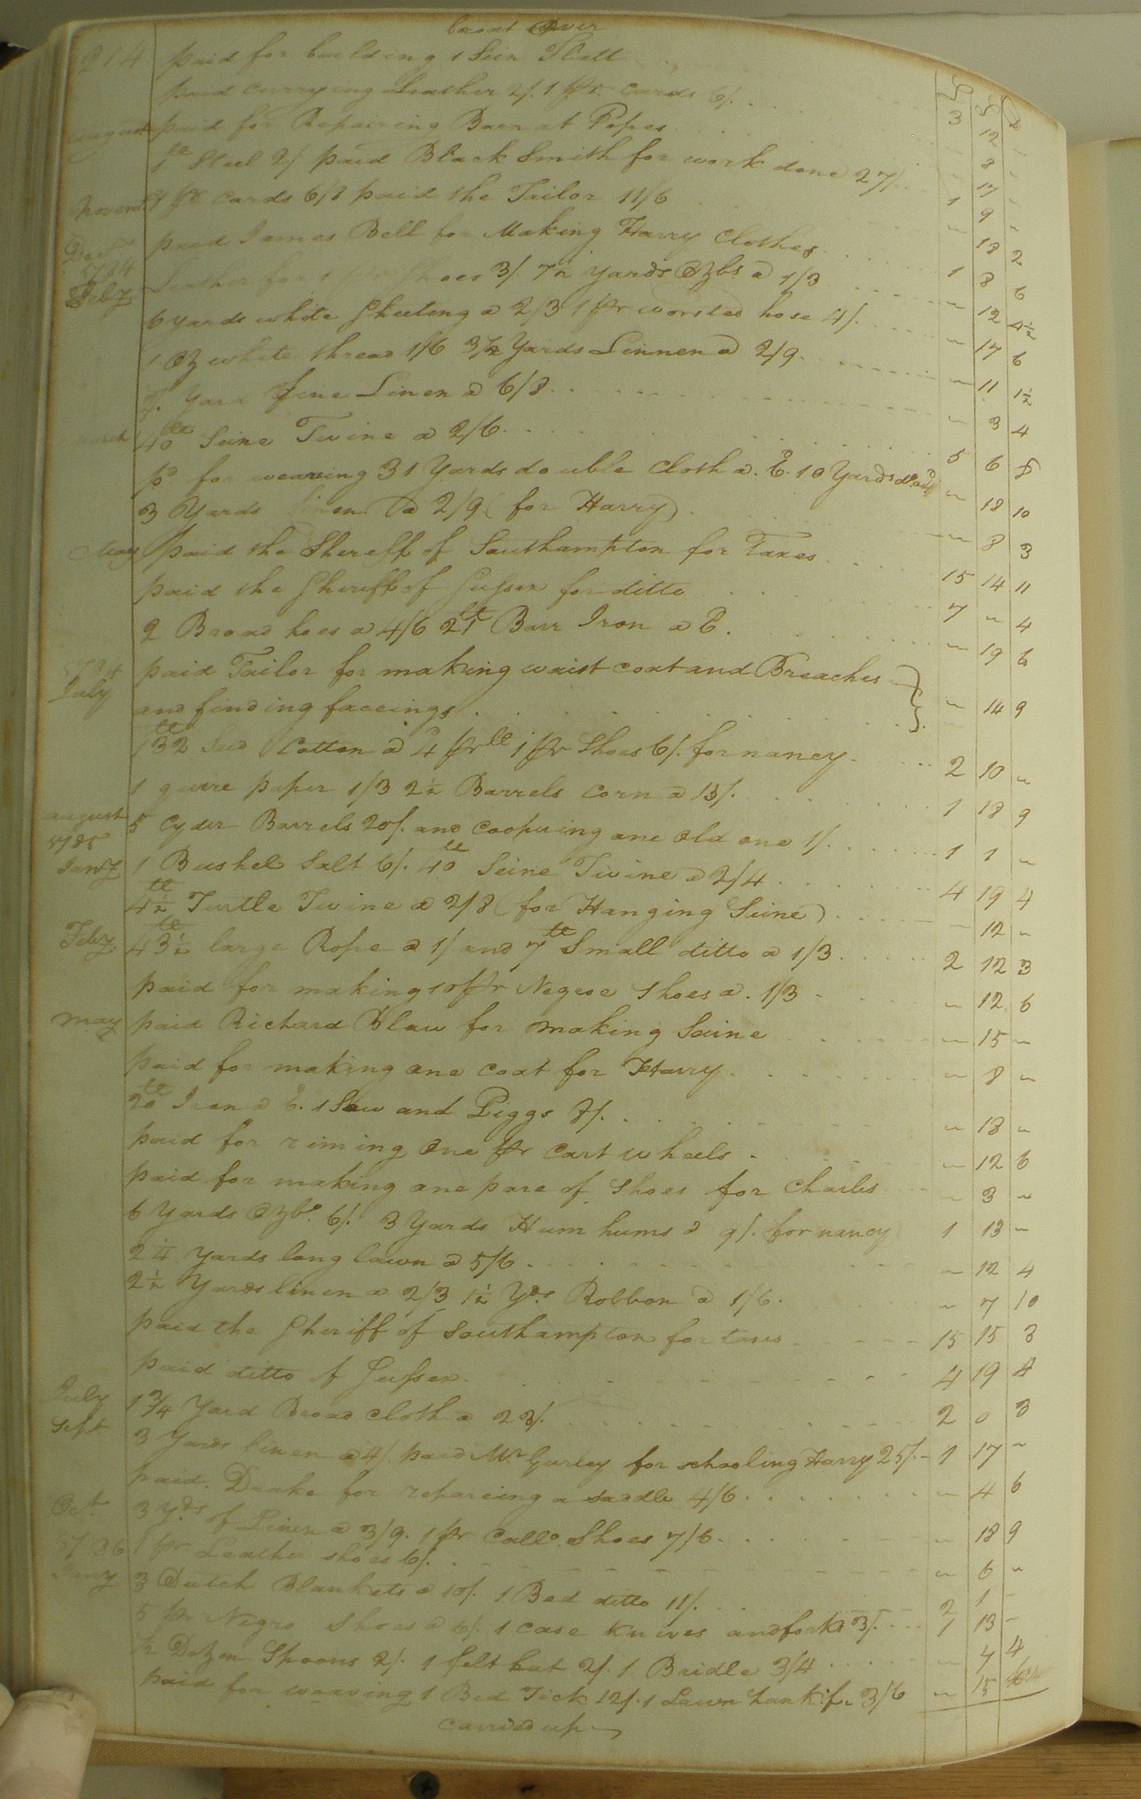 broat over
paid for building 1
paid currying Leather 2/. 1 pr. cards 6/. 3 12 -
august paid for Repairing Barn at Popes - 8 -
1 lb Steel 2/ paid Black Smith for work done 27/ - 17 -
Novem cards 6/8 paid the Tailor 11/6 1 9 -
paid James Bell for Making Harry Clothes - 18 2
Feby Leather for 1 pr shoes 3/. 7½ yards Ozbs a 1/3 1 8 6
6 yards white Sheeting a 2/3 1 pr worsted hose 4/. - 12 4½
1 oz white thread 1/6 3½ Yards Linnen a 2/9 - 17 6
Yard fine Linen a 6/8 - 11 1½
March 40 lb Seine Twine a 2/6 - 3 4
pd for weaving 31 Yards double cloth a. 10 Yards 5 6 8
3 Yards a 2/9 (for Harry) - 18 10
May paid the Shereff of Southampton for Taxes - 8 3
paid the Sheriff of Sussex for ditto 15 14 11
2 Broad hoes a 4/6 21 lb Barr Iron a 6. 7 - 4
paid Tailor for making waist coat and Breaches - 19 6
July and finding faceings - 14 9
132 lb Seed Cotton a 4 pr lb 1 pr Shoes 6/. for nancy 2 10 -
1 quire paper 1/3 2½ Barrels corn a 15/. 1 18 9
august 5 Cyder Barrels 20/. and coopering one old one 1/. 1 1 -
1785
Jany 1 Bushel Salt 6/. 40 lb Seine Twine a 2/4 4 19 4
4½ lb Turtle Twine a 2/8 (for Hanging Seine) - 12 -
Feby 43½ lb large Rope a 1/ and 7 lb Small ditto a 1/3 2 12 3
paid for making 10 pr Negroe Shoes a. 1/3 - 12 6
May paid Richard Blaw for making Seine - 15 -
paid for making one coat for Harry - 8 -
20 lb Iron a 6. 1 Sow and Piggs 8/. - 18 -
paid for riming one pr cart wheels - 12 6
paid for making one pare of Shoes for Charles - 3 -
6 Yards Ozbs. 6/. 3 Yards Hum hums a 9/. for nancy 1 13 -
2¼ Yards long lawn a 5/6 - 12 4
2½ Yards linen a 2/3 1½ Yds Robbon a 1/6 - 7 10
paid the Sheriff of Southampton for taxes 15 15 3
paid ditto of Sussex 4 19 4
July 1¾ Yard Broad cloth a 23/. 2 0 3
Sept 3 Yards linen a 4/. paid Mr Gurley for schooling Harry 25/. 1 17 -
paid. Drake for repareing a saddle 4/6 - 4 6
Oct 3 Yds of Linen a 3/9. 1 pr Callo. Shoes 7/6 - 18 9
1786 1 pr Leather shoes 6/. - 6 -
Jany 3 Dutch Blankets a 10/. 1 Bed ditto 11/. 2 1 -
5 pr Negro Shoes a 6/. 1 case knives and forks 3/. 1 13 -
½ Dozen Spoons 2/. 1 felt hat 2/. 1 Bridle 3/4 - 7 4
paid for weaving 1 Bed Tick 12/. 1 Lawn hankf 3/6 - 15
carried up